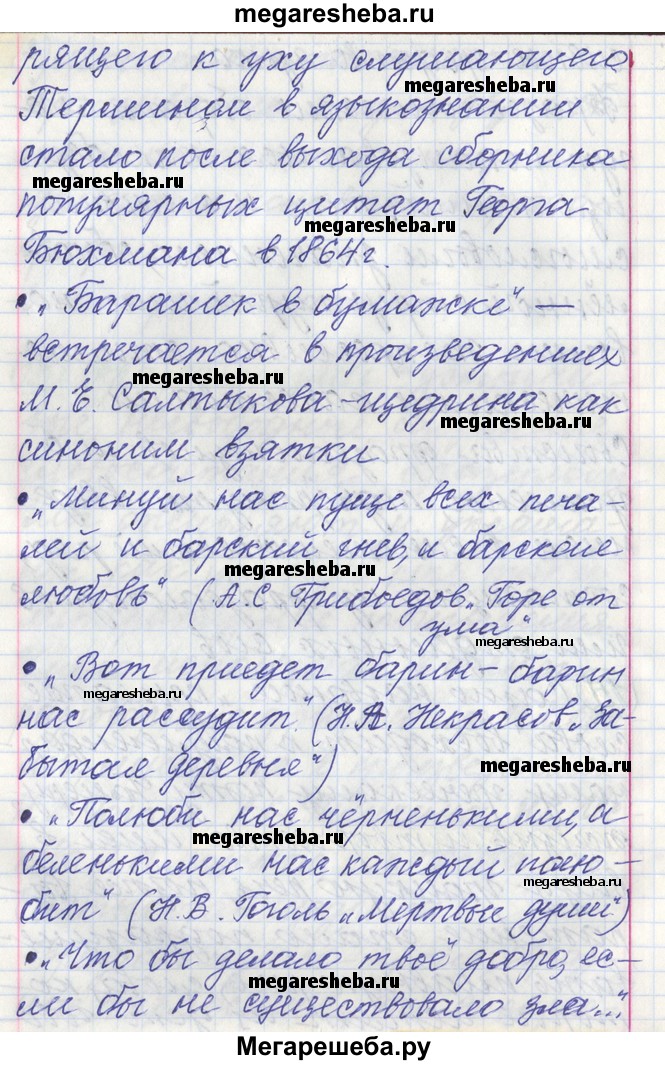 megaresheba.ru
рящего к уху слушающего.
megaresheba.ru
Термином в языкознании
стало после выхода сборника
megaresheba.ru
популярных цитат Георга
megaresheba.ru
Бюхмана в 1864г.
• „Барашек в бумажке" —
встречается в произведениях
megaresheba.ru
М. Е. Салтыкова-Щедрина как
megaresheba.ru
синоним взятки
• „Минуй нас пуще всех печа-
лей и барский гнев, и барская
megaresheba.ru
любовь" (А.С Грибоедов „Горе от
ума"
megaresheba.ru
• „Вот приедет барин - барин
megaresheba.ru
megaresheba.ru
нас рассудит." (Н.А. Некрасов „За-
бытая деревня")
megaresheba.ru
• „Полюби нас чёрненькими, а
megaresheba.ru
беленькими нас каждый полю-
megaresheba.ru
бит" (Н.В. Гоголь „Мертвые души")
• „Что бы делало твоё добро, ес-
megaresheba.ru
ли бы не существовало зла..."
Мегарешеба.ру